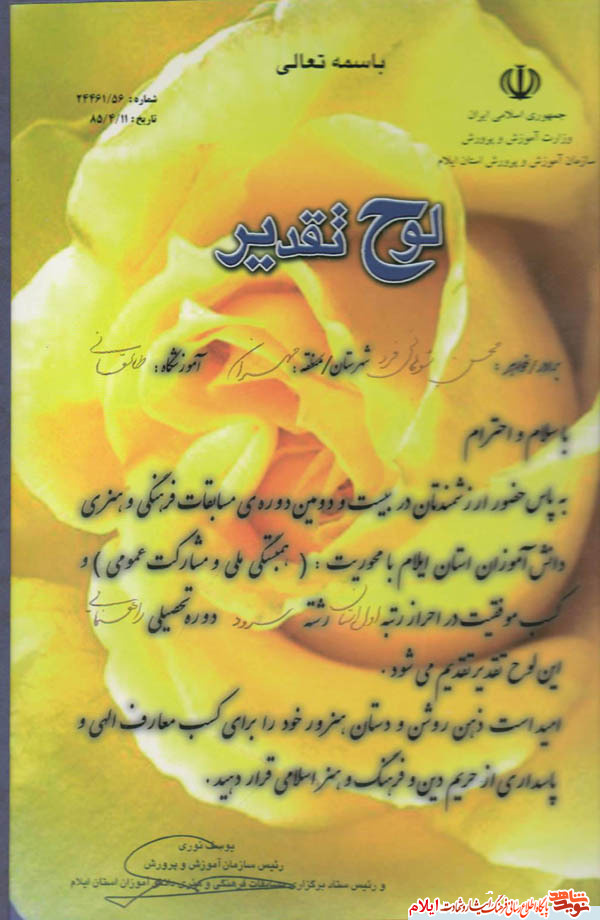 باسمه تعالی
جمهوری اسلامی ایران
وزارت آموزش و پرورش
سازمان آموزش و پرورش استان ایلام
شماره: ۲۴۴۶۱/۵۶
تاریخ: ۸۵/۴/۱۱
لوح تقدیر
برادر/خواهر: محسن شوهانی فرد شهرستان/منطقه: مهران آموزشگاه: طالقانی
با سلام و احترام
به پاس حضور ارزشمندتان در بیست و دومین دوره‌ی مسابقات فرهنگی و هنری
دانش آموزان استان ایلام با محوریت: (همبستگی ملی و مشارکت عمومی) و
کسب موفقیت در احراز رتبه اول استان رشته سرود دوره تحصیلی راهنمایی
این لوح تقدیر تقدیم می شود.
امید است ذهن روشن و دستان هنرور خود را برای کسب معارف الهی و
پاسداری از حریم دین و فرهنگ و هنر اسلامی قرار دهید.
یوسف نوری
رئیس سازمان آموزش و پرورش
و رئیس ستاد برگزاری مسابقات فرهنگی و هنری دانش آموزان استان ایلام
نوید شاهد
ایلام